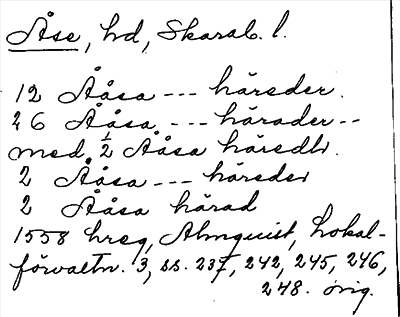 Åse, hd, Skarab. l.
12 Ååsa --- häreder.
26 Ååsa --- härader--
med 1/2 Ååsa häredhr.
2 Ååsa --- häreder
2 Ååsa härad
1558 hreg, Almquist, Lokal-
förvaltn. 3, ss. 237, 242, 245, 246,
248. orig.